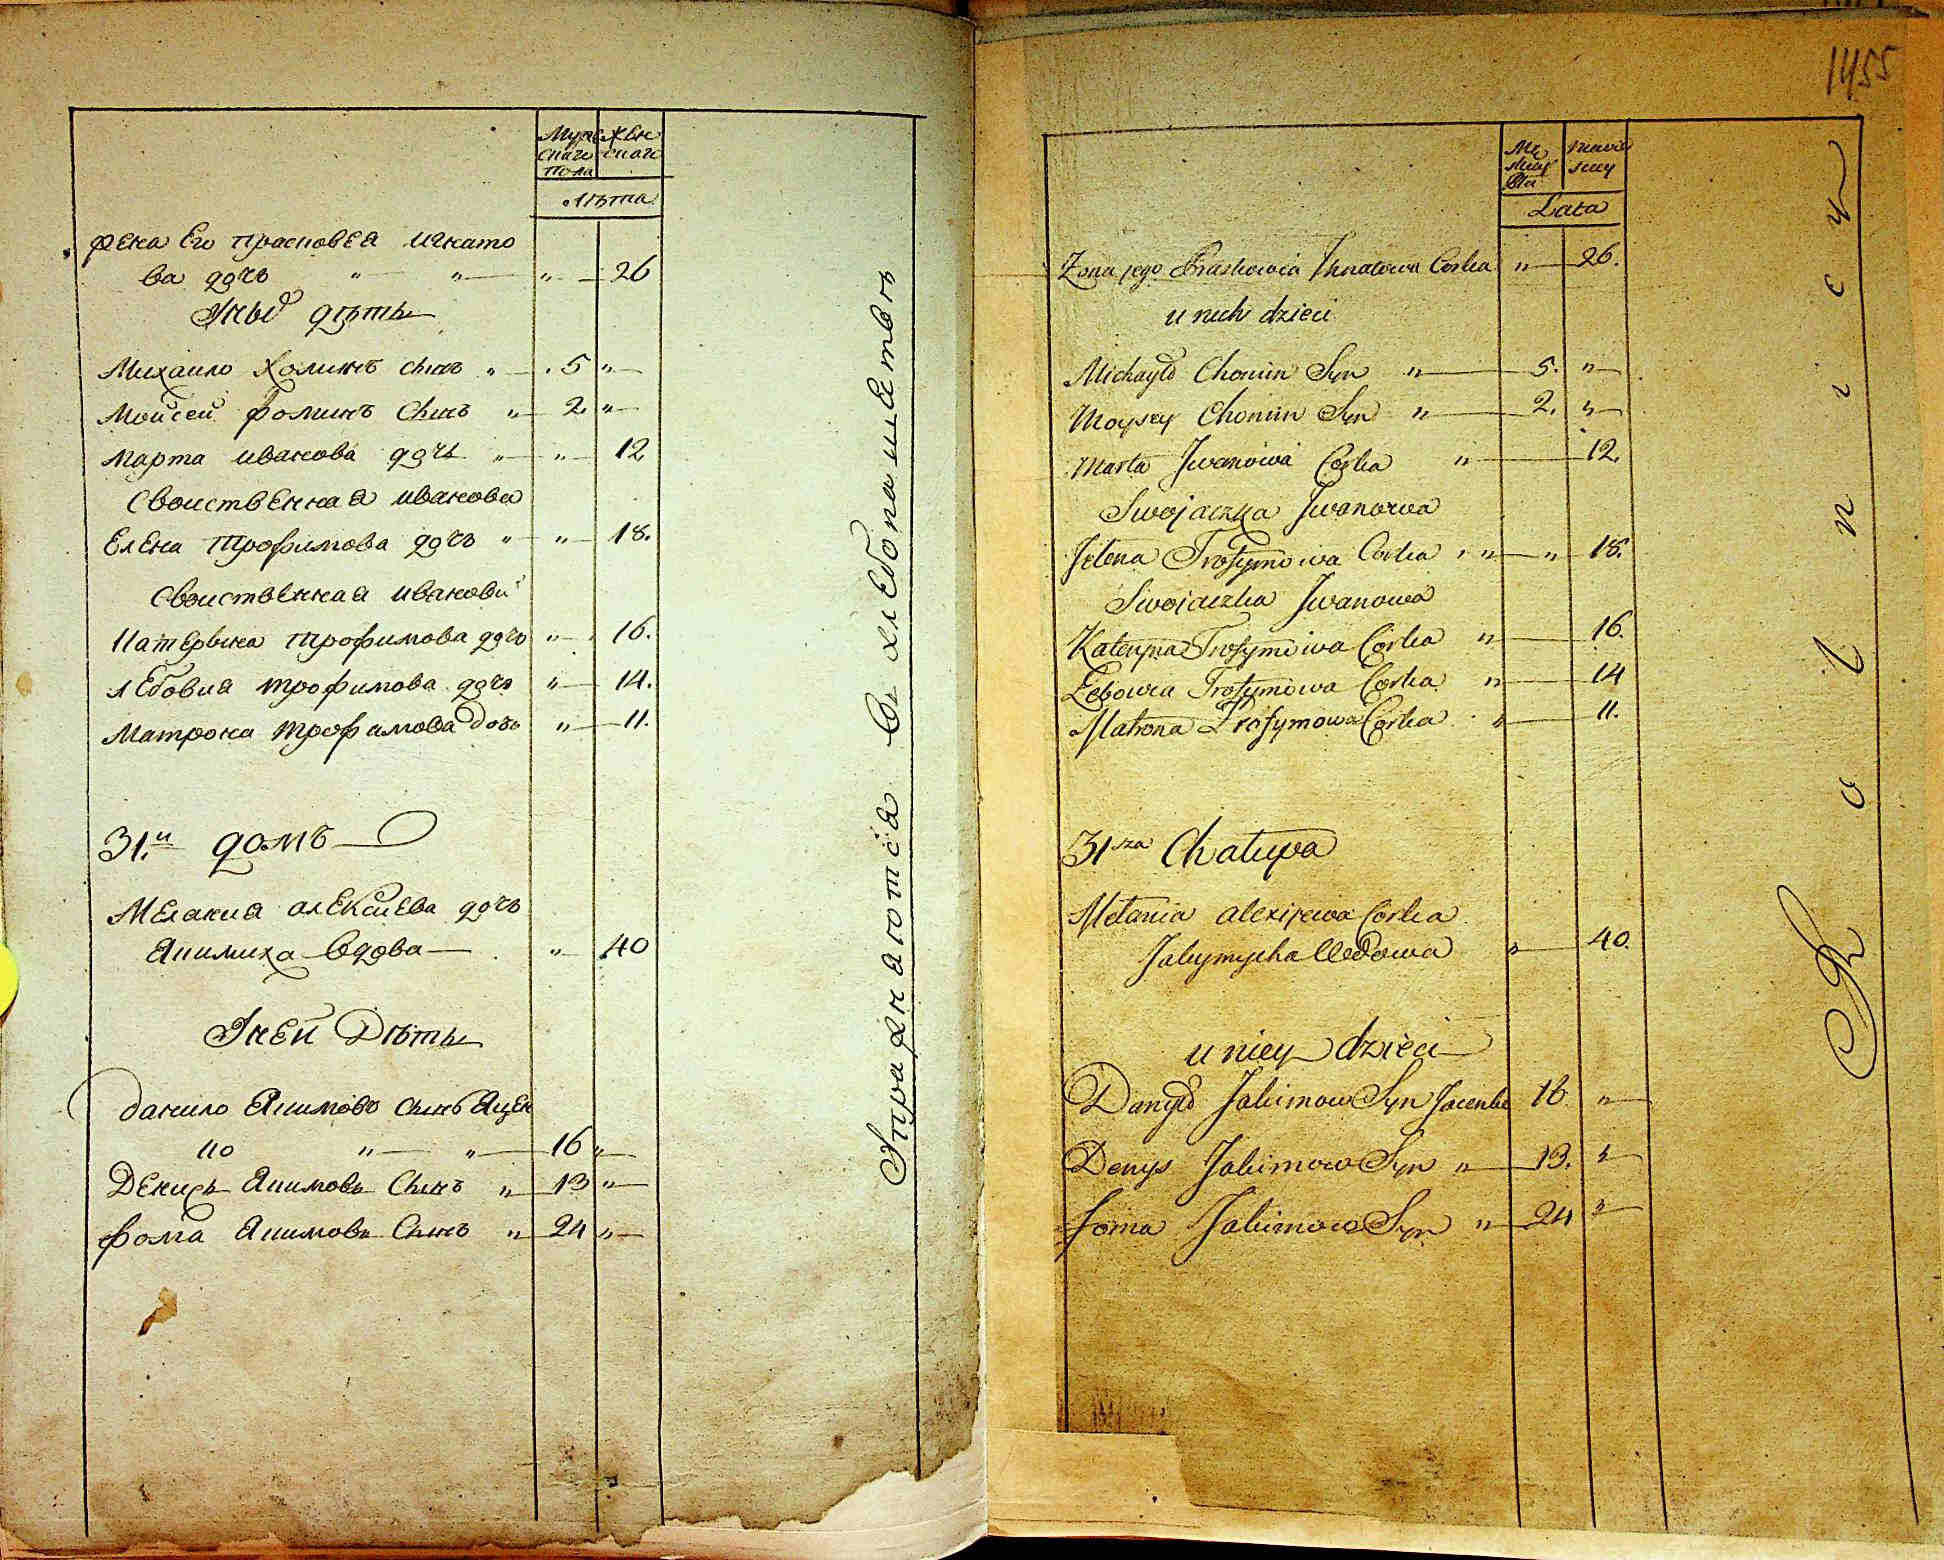 Мужескаго пола
Женскаго
Лѣта
жена Его прасковѣя игнато
ва дочь " " " 26
Уныхъ дѣты
Михаило Хоминъ сынъ " 5 "
Мойсей Фоминъ Сынъ " 2 "
Марта иванова дочь " " 12
Своиственная иванова
Елена Трофимова дочь " " 18.
Своиственная иванови
Катерына Трофимова дочь " 16.
лебовия трофимова дочь " 14.
Матрона трофимова дочь " 11.
31.й домъ
Мелания алексиева дочь
Якимиха вдова " 40
У ней Дѣты
данило Якимовъ сынъ Яцен
ко " " 16 "
Денисъ Якимовъ Сынъ " 13 "
Фома Якимовъ Сынъ " 24 "
Упражнаютса въ хлебопашественъ
1455
Męskiey Płci
niewieskiey
Lata
Zona jego Praskowia Ihnatowa Corka " 26.
u nich dzieci
Michayło Chomin Syn " 5. "
Moysey Chomin Syn " 2. "
Marta Jwanowa Corka " 12.
Swojaczka Jwanowa
Jelena Trofymowa Corka " " 18.
Swojaczka Jwanowa
Kateryna Trofymowa Corka " 16.
Lebowia Trofymowa Corka " 14
Matrona Trofymowa Corka " 11.
31sza Chałupa
Melania alexijewa Corka
Jakymycha Wdowa " 40.
u niey dzieci
Danyło Jakimow Syn Jacenko 16 "
Denys Jakimow Syn " 13. "
foma Jakimow Syn " 24 "
Rolnicy